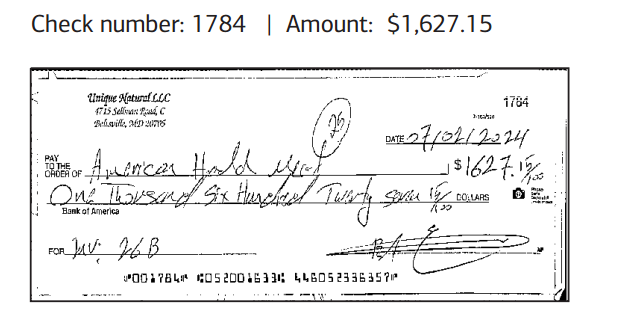 Check number: 1784 | Amount: $1,627.15
Unique Natural LLC
4715 Sellman Road, C
Beltsville, MD 20705
1784
26
DATE 07/02/2024
PAY
TO THE
ORDER OF American Halal Meat $1627.15/100
One Thousand Six Hundred Twenty seven 15/100 DOLLARS
Bank of America
FOR Inv: 26B
⑈001784⑈ ⑆052001633⑆ 446052336357⑈